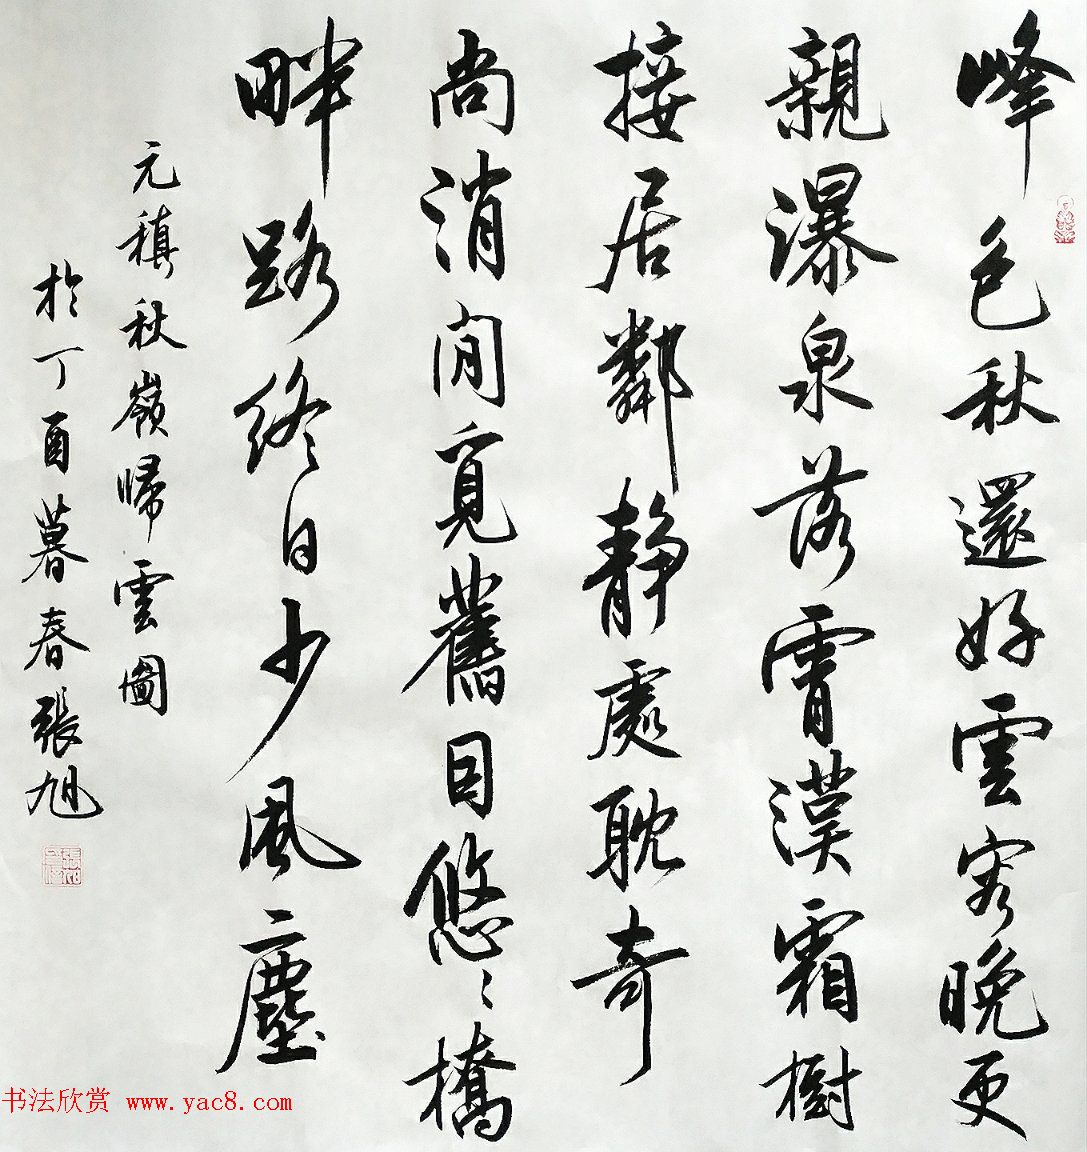 峰色秋還好雲容晚更
親瀑泉落霄漢霜樹
接居鄰靜處耽奇
尚消閒覓舊因悠〻橋
畔路終日少風塵
元稹秋嶺歸雲圖
於丁酉暮春張旭
书法欣赏 www.yac8.com